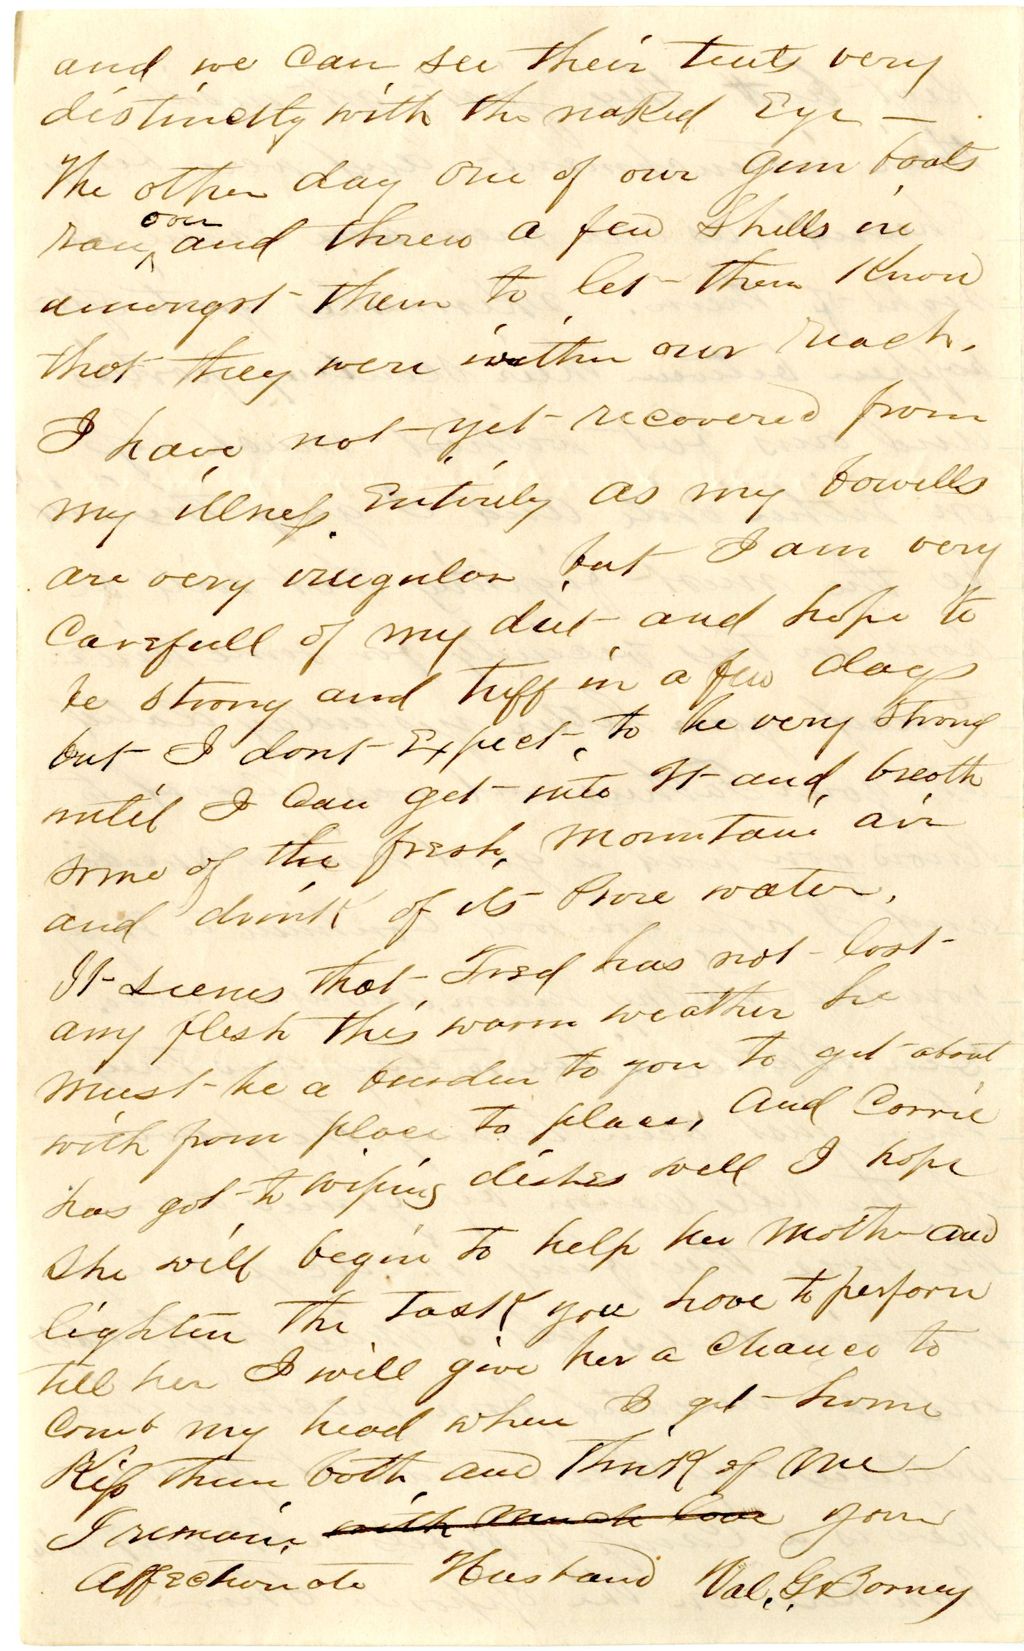 and we can see their tents very
distinctly with the naked Eye —
The other day one of our gun boats
ran over and threw a few Shells in
amongst them to let them Know
that they were within our reach.
I have not yet recovered from
my illness Entirely as my bowells
are very irregular but I am very
Carefull of my diet and hope to
be strong and tuff in a few days
but I dont Expect to be very strong
until I Can get into Vt and breath
some of the fresh mountain air
and drink of its Pure water.
It seems that Fred has not lost
any flesh this warm weather he
must be a burden to you to get about
with from place to place, And Corrie
has got to wiping dishes well I hope
She will begin to help her Mother and
lighten the task you have to perform
tell her I will give her a chance to
Comb my head when I get home
Kiss them both and Think of me
I remain with much love your
Affectionate Husband Val. G. Barney